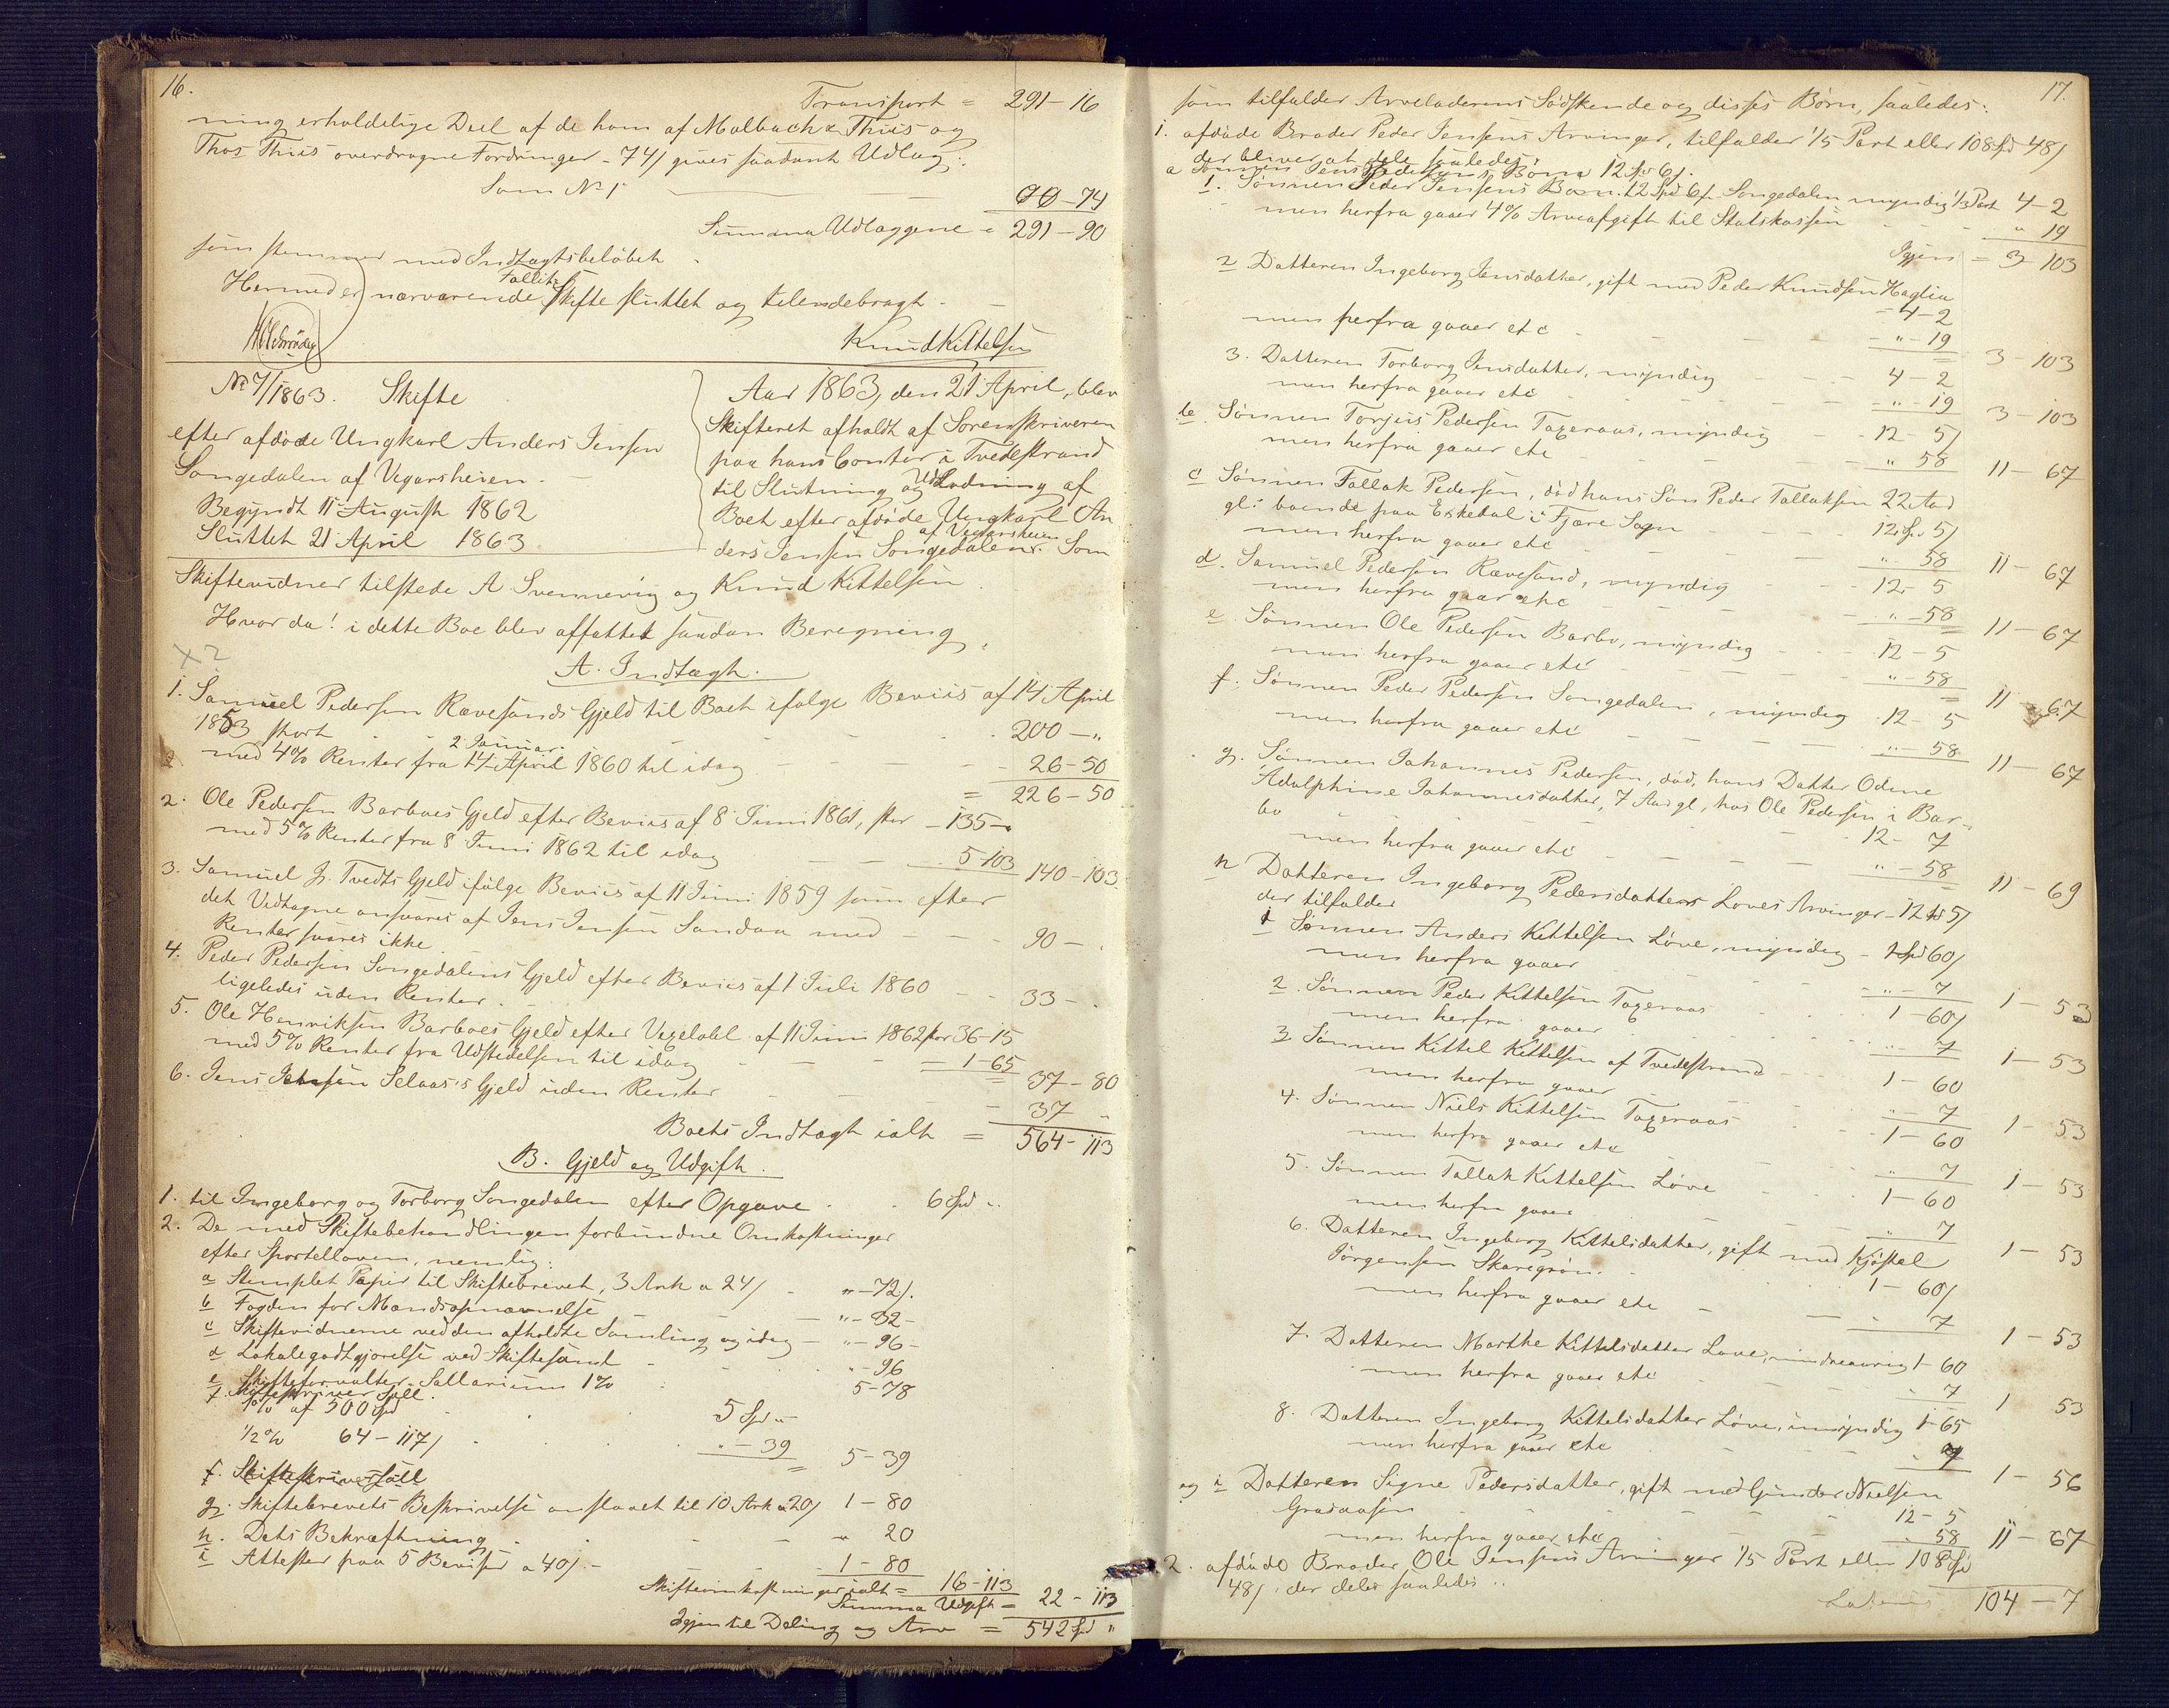 16.
Transport = 291-16
ning erholdelige Deel af de ham af Malbach & Thiis og
Thos Thiis overdragne Fordringer - 74/ gives saadant Udlag:
Som No 1 00-74
Summa Udlaggene = 291-90
som stemmer med Indtægtsbeløbet
Fallit
Hermed er nærværende Skifte sluttet og tilendebragt.
Knud Kittelsen
No 7/1863. Skifte
efter afdøde Ungkarl Anders Jensen
Songedalen af Vegarsheien.
Begyndt 11 August 1862
Sluttet 21 April 1863
Aar 1863, den 21 April, blev
Skifteret afholdt af Sorenskriveren
paa hans Contor i Tvedestrand
til Slutning og Udlodning af
Boet efter afdøde Ungkarl An
af Vegarsheien
ders Jensen Songedalen. Som
Skiftevidner tilstede A Svennevig og Knud Kittelsen
Hvor da! i dette Boe blev affattet saadan Beregning
x2
A. Indtægt.
1. Samuel Pedersen Rævesands Gjeld til Boet ifølge Beviis af 14 April
1853 stort 200-"
2 Januar
med 4% Renter fra 14 April 1860 til idag 26-50
= 226-50
2. Ole Pedersen Barboes Gjeld efter Beviis af 8 Juni 1861, stor - 135-
med 5% Renter fra 8 Juni 1862 til idag 5-103 140-103
3. Samuel J. Tvedts Gjeld ifølge Beviis af 11 Juni 1859 som efter
det Vedtagne ansvares af Jens Jensen Sandaa med 90-
Renter svares ikke
4. Peder Pedersen Songedalens Gjeld efter Beviis af 1 Juli 1860 33-
ligeledes uden Renter.
5. Ole Henriksen Barboes Gjeld efter Vexelobl. af 11 Juni 1862 stor 36-15
med 5% Renter fra Udstedelsen til idag 1-65 37-80
6. Jens Jensen Selaas's Gjeld uden Renter 37 "
Boets Indtægt ialt = 564-113
B. Gjeld og Udgift.
1. til Ingeborg og Torborg Songedalen efter Opgave 6 Spd "
2. De med Skiftebehandlingen forbundne Omkostninger
efter Sportelloven, nemlig:
a Stemplet Papir til Skiftebrevet, 3 Ark a 24/ "-72/.
b Fogden for Mandsopnævnelse "-32-
c Skiftevidnerne ved den afholdte Samling og idag - "-96-
d Lokalegodtgjørelse ved Skiftesaml "-96
e Skifteforvalter Sallarium 1% 5-78
f. Skifteskriver Sall.
1% af 500 Spd 5 Spd "
1/2% 64-117/ "-39 5-39
f. Skifteskriversall
g. Skiftebrevets Beskrivelse anslaaet til 10 Ark a 20/ 1-80
h. Dets Bekræftning " 20
i Attester paa 5 Beviser a 40/.- 1-80
Skifteomkostninger ialt = 16-113
Summa Udgift = 22-113
Igjen til Deling og Arv = 542 Spd "
17.
som tilfalder Arveladerens Sødskende og disses Børn, saaledes:
1. afdøde Broder Peder Jensens Arvinger, tilfalder 1/5 Part eller 108 Spd 48/
der bliver at dele saaledes:
a Sønnen Jens Pedersens Børn 12 Spd 6/.
1. Sønnen Peder Jensens Børn. 12 Spd 6/ Songedalen myndig 1/3 Part 4-2
men herfra gaaer 4% Arveafgift til Statskassen " 19
Igjen = 3-103
2 Datteren Ingeborg Jensdatter, gift med Peder Knudsen Haglia
- 4-2
men herfra gaaer etc - "-19 3-103
3. Datteren Torborg Jensdatter, myndig 4-2
men herfra gaaer etc - "-19 3-103
b. Sønnen Torjus Pedersen Taxeraas, myndig 12-5/
men herfra gaaer etc " 58 11-67
c Sønnen Tallak Pedersen, død hans Søn Peder Tallaksen 22 Aar
gl: boende paa Eskedal i Fjære Sogn 12 Spd 5/
men herfra gaaer etc "-58 11-67
d. Samuel Pedersen Rævesand, myndig 12-5
men herfra gaar etc "-58 11-67
e. Sønnen Ole Pedersen Barbo, myndig 12-5
men herfra gaaer etc "-58 11-67
f. Sønnen Peder Pedersen Songedalen, myndig 12-5
men herfra gaaer etc "-58 11-67
g. Sønnen Johannes Pedersen, død, hans Datter Odine
Adolphine Johannesdatter, 7 Aar gl, hos Ole Pedersen i Bar-
bo 12-7
men herfra gaaer etc "-58 11-69
h Datteren Ingeborg Pedersdatters Loves Arvinger - 12 Spd 5/
der tilfalder
1 Sønnen Anders Kittelsen Løve, myndig - 1 Spd 60/
men herfra gaaer "-7 1-53
2. Sønnen Peder Kittelsen Taxeraas 1-60/
men herfra gaaer " 7 1-53
3 Sønnen Kittel Kittelsen af Tvedestrand 1-60
men herfra gaaer "-7 1-53
4. Sønnen Niels Kittelsen Taxeraas 1-60
men herfra gaaer etc " 7 1-53
5. Sønnen Tallak Kittelsen Løve 1-60
men herfra gaaer " 7 1-53
6. Datteren Ingeborg Kittelsdatter, gift med Kjøstel
Jørgensen Skaregrøn. 1-60/
men herfra gaaer etc - " 7 1-53
7. Datteren Marthe Kittelsdatter Love, mindreaarig 1-60
men herfra gaaer etc - 7 1 53
8. Datteren Ingeborg Kittelsdatter Løve, umyndig 1-65
men herfra gaaer etc - 7 1-56
og i Datteren Signe Pedersdatter, gift med Gunder Nielsen
Graaaasen 12-5
men herfra gaaer etc 58 11-67
2. afdøde Broder Ole Jensens Arvinger 1/5 Part eller 108 Spd
48/. der deles saaledes:
Lateris 104-7